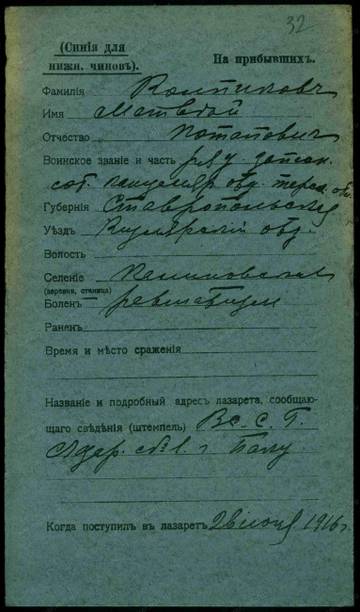 32
(Синія для нижн. чиновъ).
На прибывшихъ.
Фамилія
Имя Матвѣй
Отчество Потаповичъ
Воинское званіе и часть ряд. запасн.
сот.
Губернія Ставропольская
Уѣздъ Кизлярскій отд.
Волость
Селеніе
(деревня, станица)
Боленъ ревматизм
Раненъ
Время и мѣсто сраженія
Названіе и подробный адресъ лазарета, сообщаю-
щаго свѣдѣнія (штемпель) Вс. С. Г.
г. Баку
Когда поступилъ въ лазаретъ 28 1916 г.